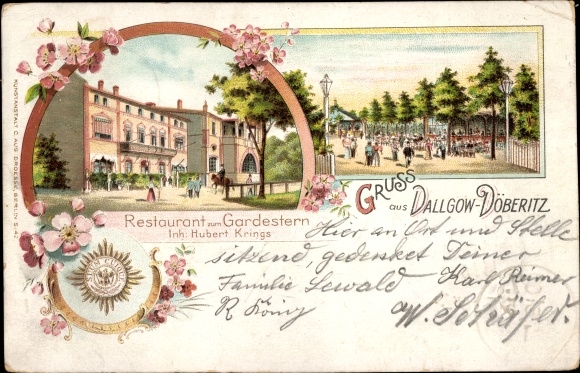 GRUSS
aus DALLGOW-DÖBERITZ
Restaurant zum Gardestern
Inh. Hubert Krings
Hier an Ort und Stelle
sitzend, gedenket Deiner
Familie Lewald Karl Reimer
R König W. Schäfer.
SUUM CUIQUE